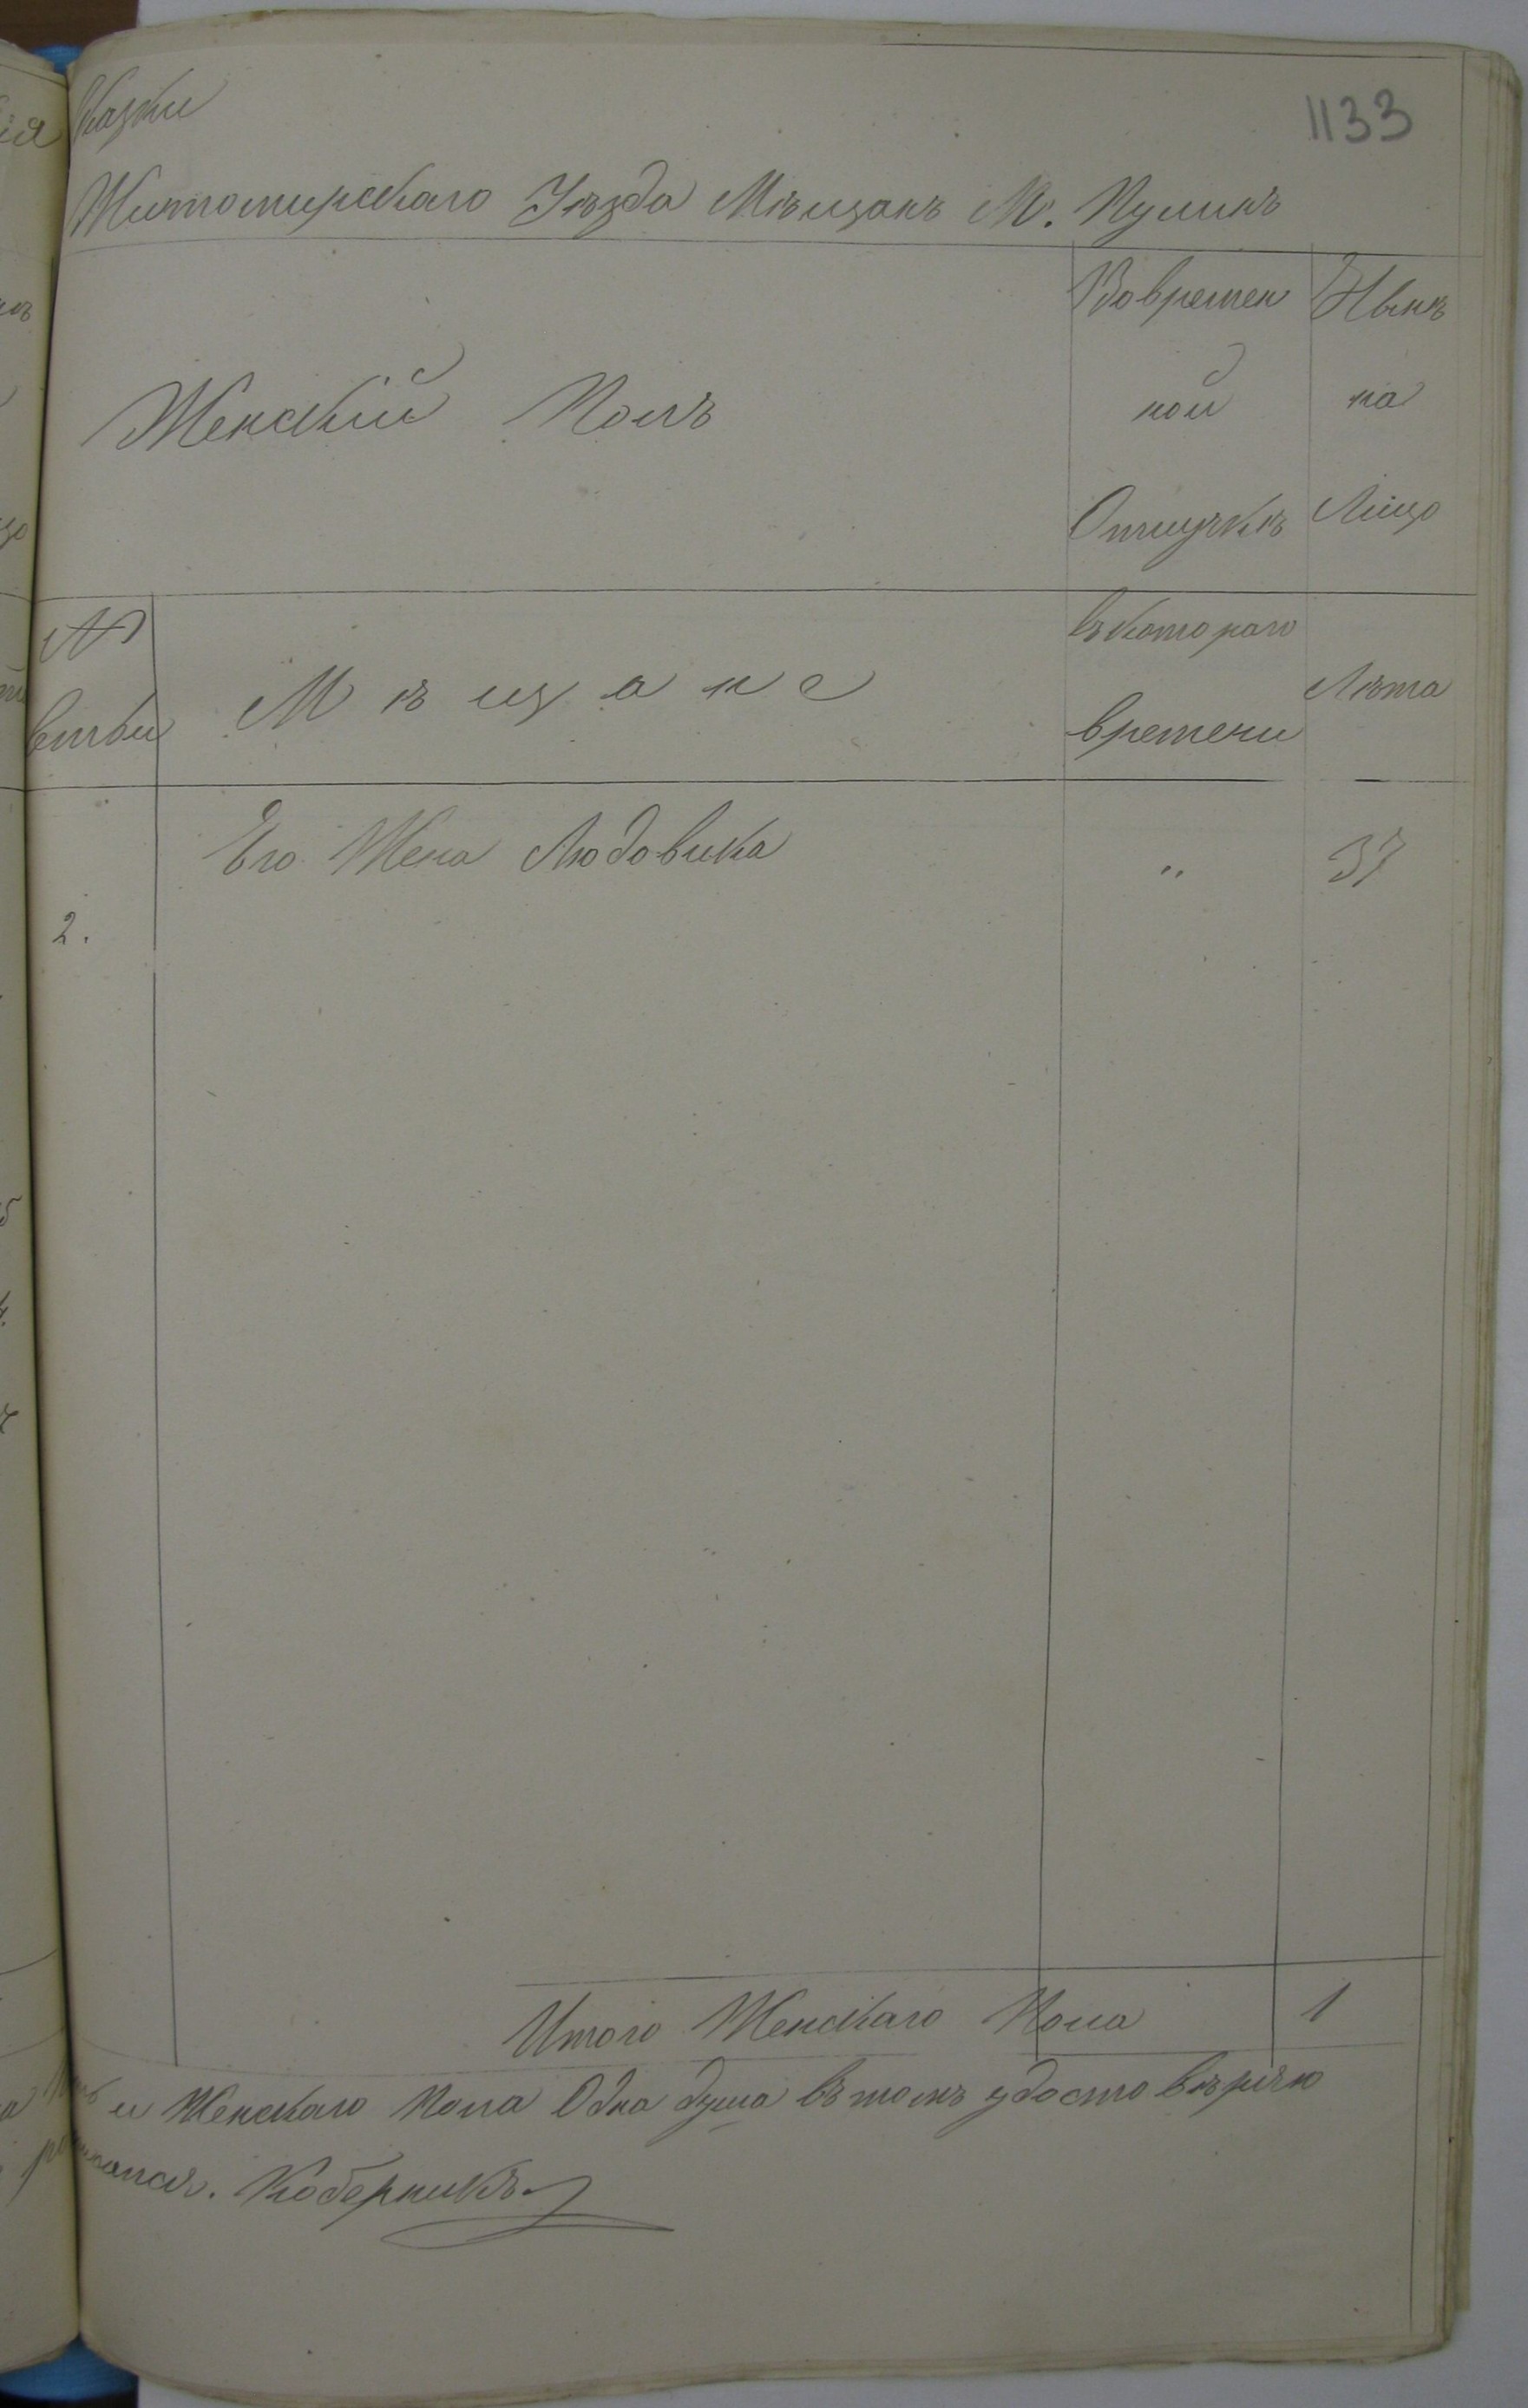 Сказки
1133
Житомирскаго Уѣзда Мѣщанъ М. Пулинъ
Женскій Полъ
Во времен
ной
Отлучкѣ
Нынѣ
на
Лицо
№
Мѣщане
съ котораго
времени
Лѣта
Его Жена Людовика
"
37
2.
Итого Женскаго Пола
1
и Женскаго Пола Одна душа въ томъ удостовѣряю
Коберникъ